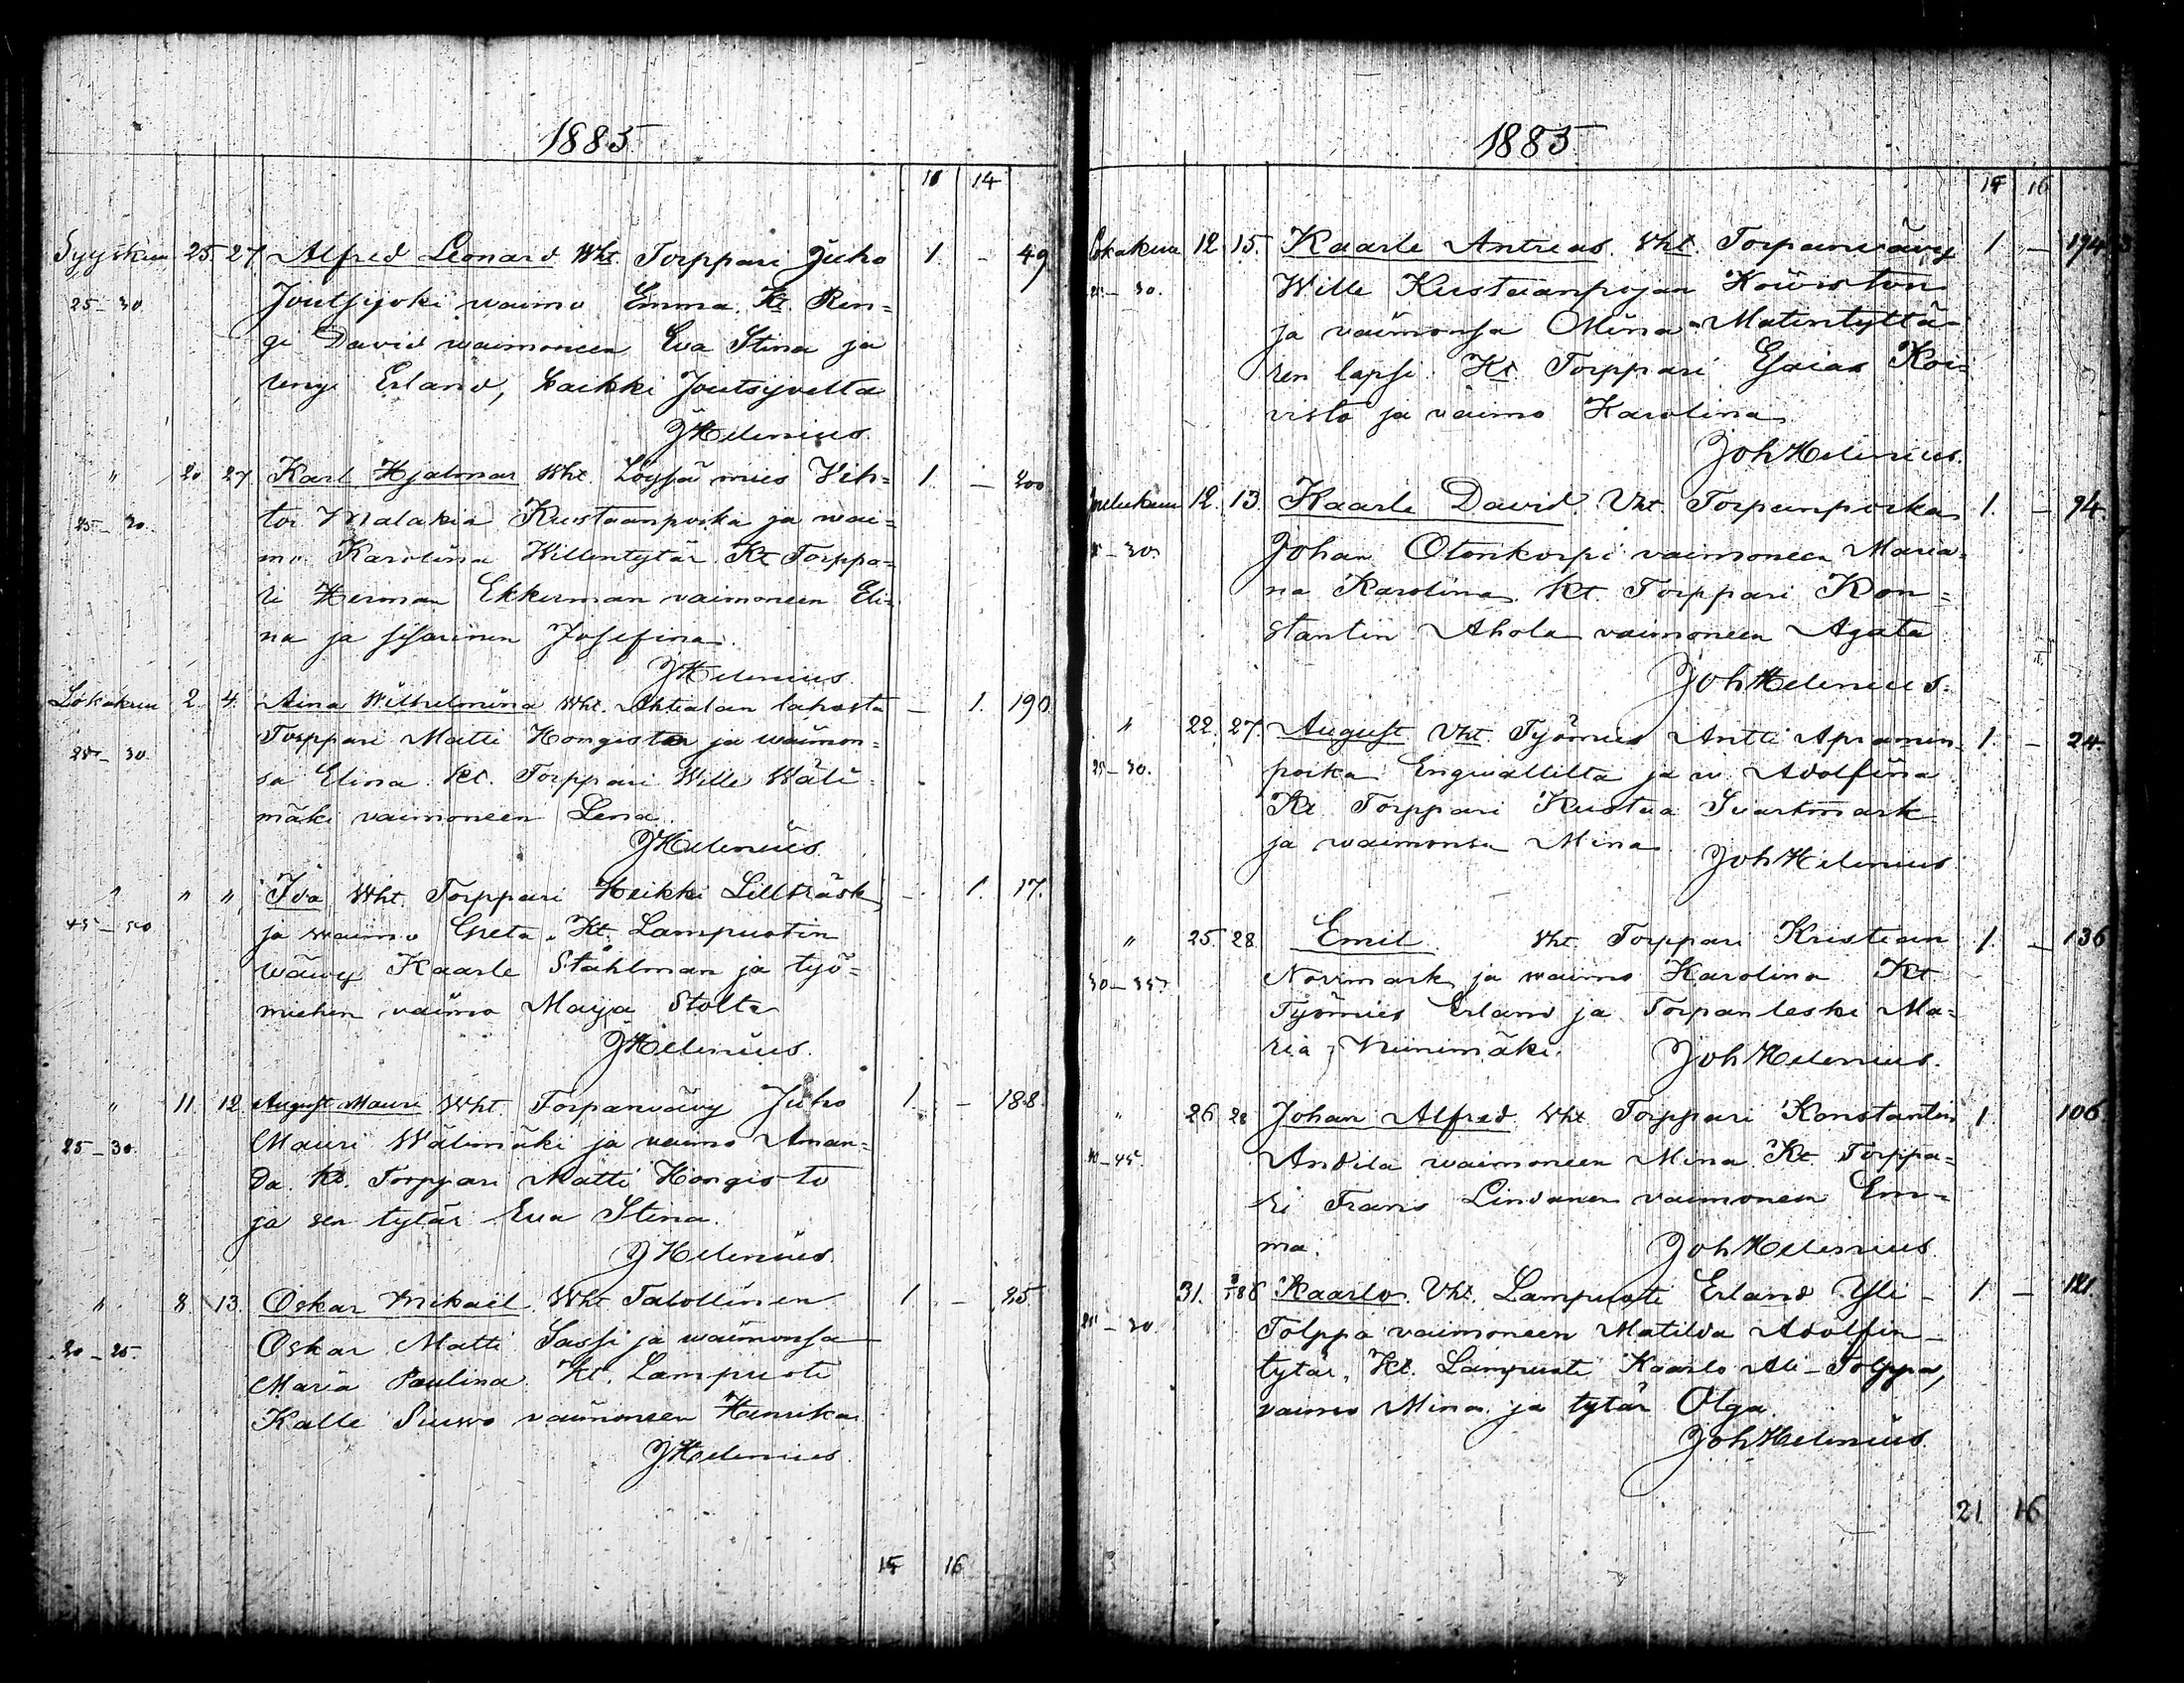 1885
11 14
Syyskuu 25. 27 Alfred Leonard Wht. Torppari Juho 1. - 49
25-30 Joutsijoki waimo Emma. Kt. Ren=
gi David waimoneen Eva Stina ja
rengi Erland, kaikki Joutsijoelta
JHelenius.
" 20 27 Karl Hjalmar Wht. Löysä mies Vih= 1. - 200
25-30. tor Malakia Kustaanpoika ja wai=
mo Karolina Willentytär. Kt Torppa=
ri Herman Ekkerman vaimoneen Eli=
na ja sisarinen Josefina.
JHelenius.
Lokakuu 2. 4. Aina Wilhelmina Wht. Ahtialan lahosta - 1. 190
25-30. Torppari Matti Hongiston ja waimon=
sa Elina. Kt. Torppari Wille Wäli=
mäki vaimoneen Lena.
JHelenius.
" " " Ida Wht. Torppari Heikki Lillträsk - 1. 17.
45-50 ja waimo Greta. Kt. Lampuotin
wäwy Kaarle Ståhlman ja työ=
miehen vaimo Maija Stolts
JHelenius.
" 11. 12. August Mauri Wht. Torpanvävy Juho 1. - 188.
25-30. Mauri Wälimäki ja vaimo Aman=
da. Kt. Torppari Matti Hongisto
ja sen tytär Eva Stina.
JHelenius.
" 8. 13. Oskar Mikael. Wht Talollinen 1. - 25
20-25. Oskar Matti Sassi ja waimonsa
Maria Paulina. Kt. Lampuoti
Kalle Siuwo vaimoneen Henrika
JHelenius.
15 16
1885.
14 16
Lokakuu 12. 15. Kaarle Antreas. Wht. Torpanvävy 1. - 194
25-30. Wille Kustaanpojan Koiviston
ja vaimonsa Miina Matintyttä=
ren lapsi. Kt. Torppari Esaias Koi=
visto ja vaimo Karolina
JohHelenius.
Joulukuu 12. 13. Kaarle David. Vht. Torpanpoika 1. - 94.
Johan Otonkorpi vaimoneen Maria=
na Karolina. Kt. Torppari Kon=
stantin Ahola vaimoneen Agata
JohHelenius.
" 22. 27. August Vht. Työmies Antti Apramin 1. - 24.
25-30. poika Engwallilta ja w. Adolfina
Kt Torppari Kustaa Svartmark
ja waimonsa Mina
JohHelenius.
" 25. 28. Emil. Vht. Torppari Kristian 1. - 136
30-35. Norrmark ja waimo Karolina Kt.
Työmies Erland ja Torpanleski Ma=
ria Niinimäki.
JohHelenius.
" 26. 28 Johan Alfred. Wht Torppari Konstantin 1. 106.
40-45. Andila waimoneen Mina. Kt. Torppa=
ri Frans Lindanen vaimoneen Em=
ma.
JohHelenius.
31. Kaarlo. Vht. Lampuoti Erland Yli- 1 - 121
25-30. Tolppa vaimoneen Matilda Adolfin-
tytär. Kt. Lampuoti Kaarlo Ali-Tolppa,
vaimo Mina. ja tytär Olga.
JohHelenius.
21 16